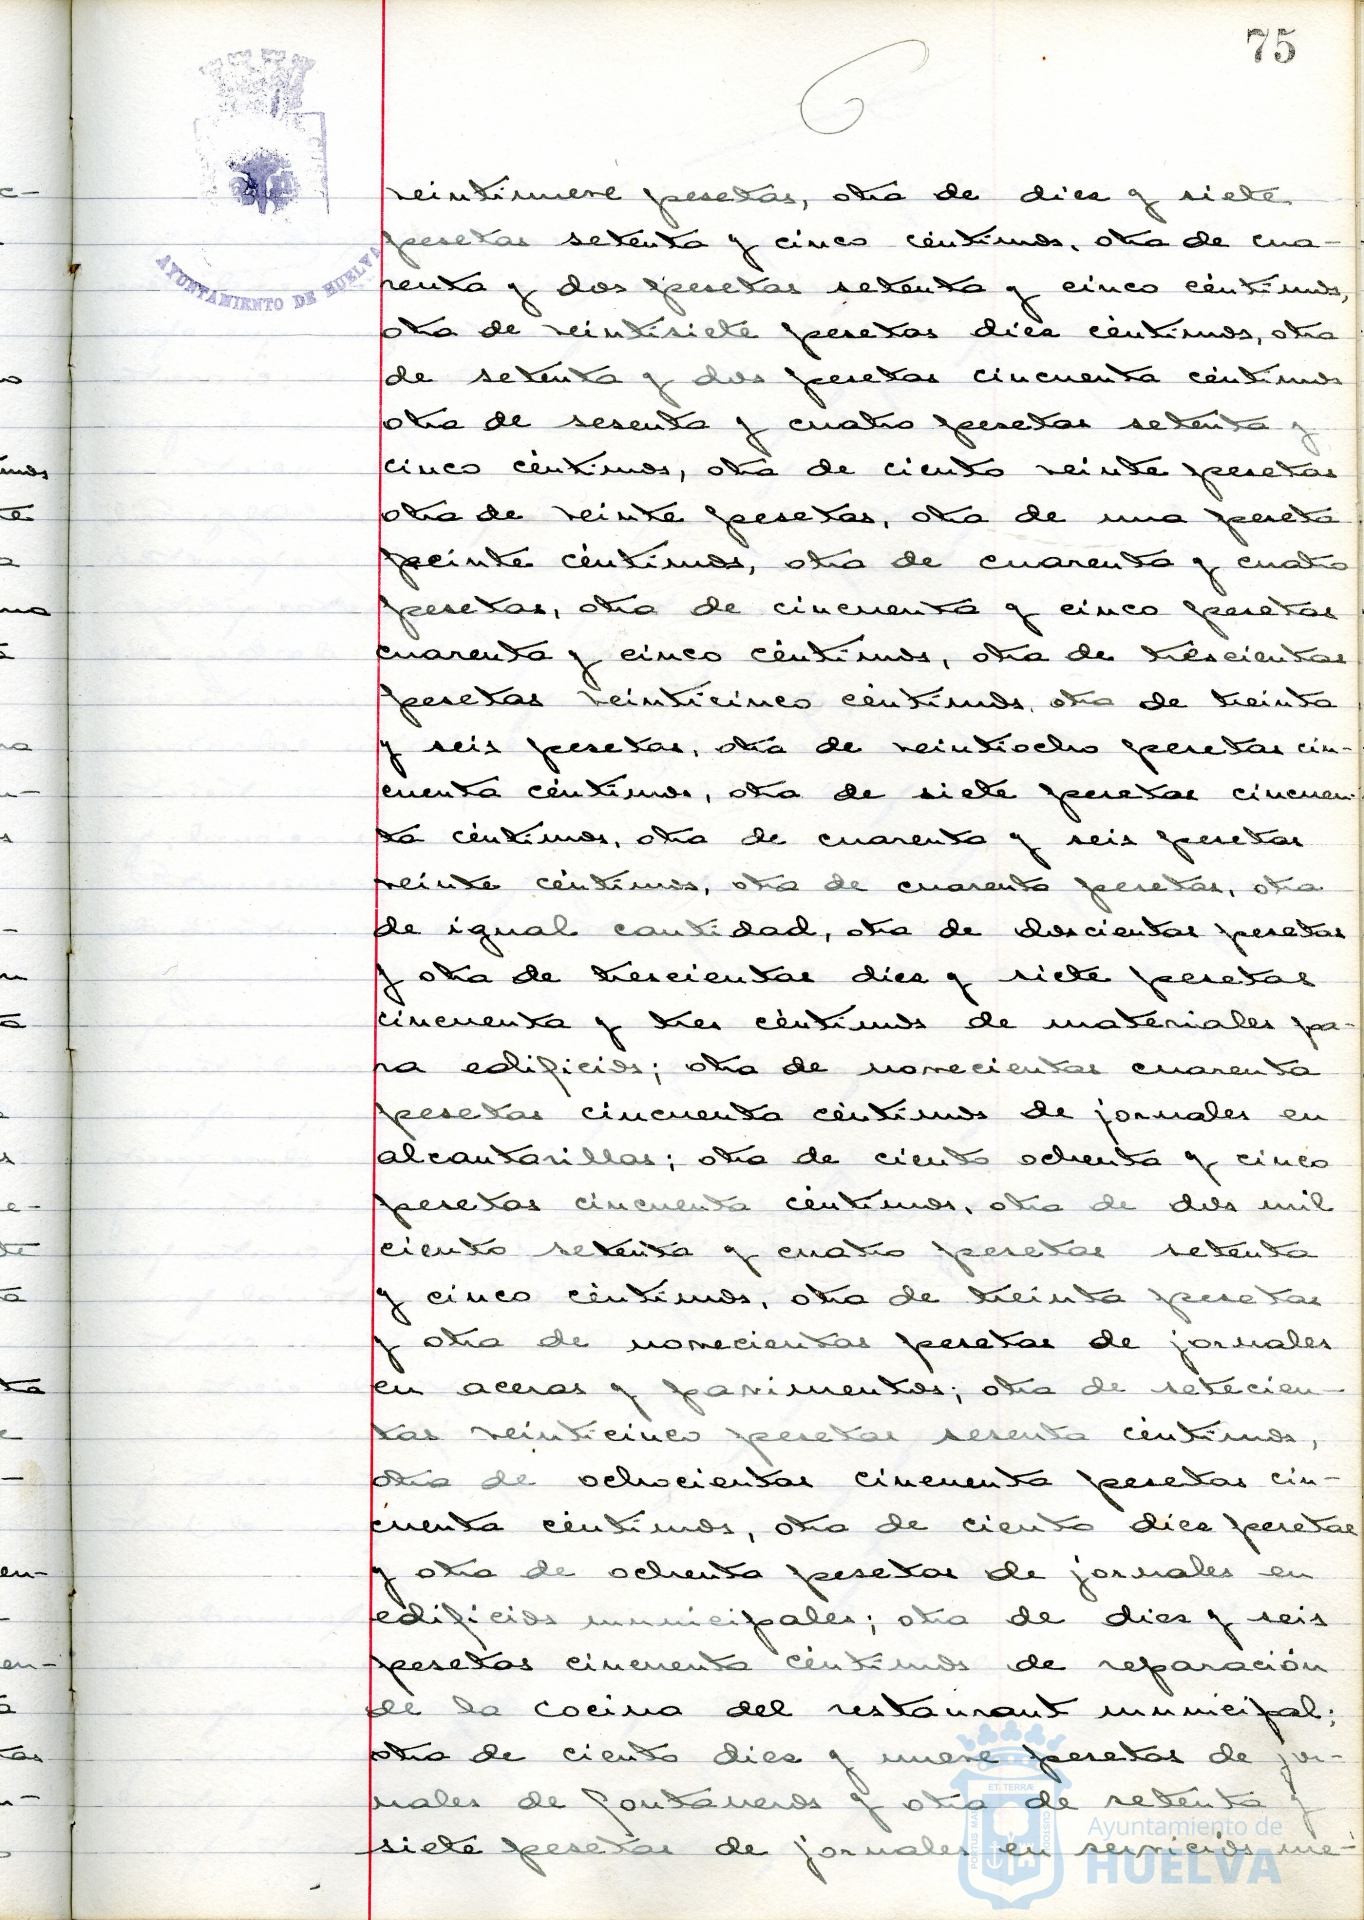 75
AYUNTAMIENTO DE HUELVA
veintinueve pesetas, otra de diez y siete
pesetas setenta y cinco céntimos, otra de cua-
renta y dos pesetas setenta y cinco céntimos,
otra de veintisiete pesetas diez céntimos, otra
de setenta y dos pesetas cincuenta céntimos
otra de sesenta y cuatro pesetas setenta y
cinco céntimos, otra de ciento veinte pesetas
otra de veinte pesetas, otra de una peseta
veinte céntimos, otra de cuarenta y cuatro
pesetas, otra de cincuenta y cinco pesetas
cuarenta y cinco céntimos, otra de trescientas
pesetas veinticinco céntimos, otra de treinta
y seis pesetas, otra de veintiocho pesetas cin-
cuenta céntimos, otra de siete pesetas cincuen-
ta céntimos, otra de cuarenta y seis pesetas
veinte céntimos, otra de cuarenta pesetas, otra
de igual cantidad, otra de doscientas pesetas
y otra de trescientas diez y siete pesetas
cincuenta y tres céntimos de materiales pa-
ra edificios; otra de novecientas cuarenta
pesetas cincuenta céntimos de jornales en
alcantarillas; otra de ciento ochenta y cinco
pesetas cincuenta céntimos, otra de dos mil
ciento setenta y cuatro pesetas setenta
y cinco céntimos, otra de treinta pesetas
y otra de novecientas pesetas de jornales
en aceras y pavimentos; otra de setecien-
tas veinticinco pesetas sesenta céntimos,
otra de ochocientas cincuenta pesetas cin-
cuenta céntimos, otra de ciento diez pesetas
y otra de ochenta pesetas de jornales en
edificios municipales; otra de diez y seis
pesetas cincuenta céntimos de reparación
de la cocina del restaurant municipal;
otra de ciento diez y nueve pesetas de jor-
nales de fontaneros y otra de setenta y
siete pesetas de jornales en servicios me-
ET TERRÆ
PORTUS MARIS
CUSTODIA
Ayuntamiento de
HUELVA